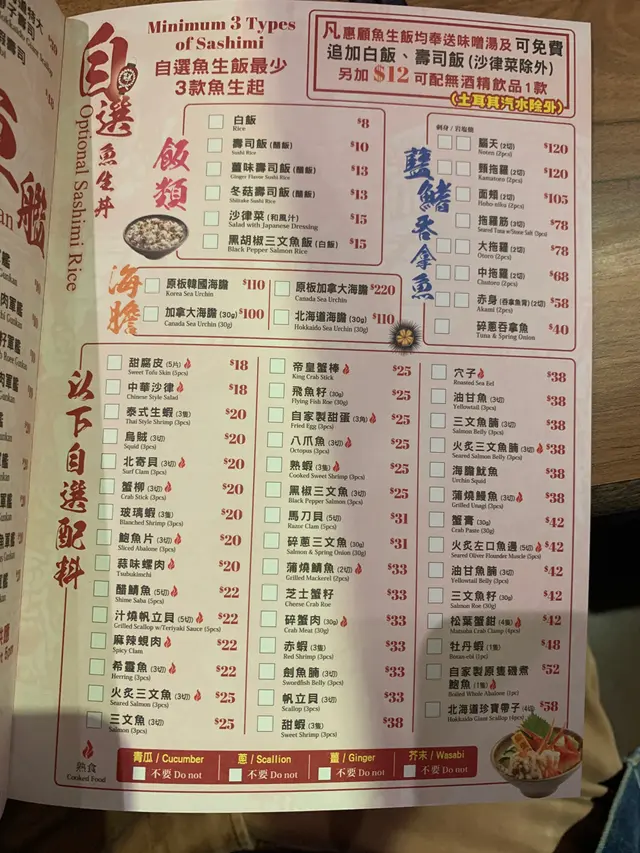 自選魚生丼
Optional Sashimi Rice
Minimum 3 Types
of Sashimi
自選魚生飯最少
3款魚生起
凡惠顧魚生飯均奉送味噌湯及可免費
追加白飯、壽司飯(沙律菜除外)
另加 $12 可配無酒精飲品1款
(土耳其汽水除外)
飯類
白飯 $8
Rice
壽司飯(醋飯) $10
Sushi Rice
薑味壽司飯(醋飯) $13
Ginger Flavor Sushi Rice
冬菇壽司飯(醋飯) $13
Shiitake Sushi Rice
沙律菜(和風汁) $15
Salad with Japanese Dressing
黑胡椒三文魚飯(白飯) $15
Black Pepper Salmon Rice
藍鰭吞拿魚
刺身/岩塩燒
腦天(2切) $120
Noten (2pcs)
頸拖羅(2切) $120
Kamatoro (2pcs)
面頰(2切) $105
Hoho-niku (2pcs)
拖羅筋(3切) $78
大拖羅(2切) $78
Otoro (2pcs)
中拖羅(2切) $68
Chutoro (2pcs)
赤身(吞拿魚背)(2切) $58
Akami (2pcs)
碎蔥吞拿魚 $40
Tuna & Spring Onion
海膽
原板韓國海膽 $110
Korea Sea Urchin
原板加拿大海膽 $220
Canada Sea Urchin
加拿大海膽(30g) $100
Canada Sea Urchin (30g)
北海道海膽(30g) $110
Hokkaido Sea Urchin (30g)
以下自選配料
甜腐皮(5片) $18
Sweet Tofu Skin (5pcs)
中華沙律 $18
Chinese Style Salad
泰式生蝦(3隻) $20
Thai Style Shrimp (3pcs)
烏賊(3切) $20
Squid (3pcs)
北寄貝(3切) $20
Surf Clam (3pcs)
蟹柳(3切) $20
Crab Stick (3pcs)
玻璃蝦(3隻) $20
Blanched Shrimp (3pcs)
鮑魚片(3切) $20
Sliced Abalone (3pcs)
蒜味螺肉 $20
Tsubukimchi
醋鯖魚(5切) $22
Shime Saba (5pcs)
汁燒帆立貝(5切) $22
Grilled Scallop w/Teriyaki Sauce (5pcs)
麻辣蜆肉 $22
Spicy Clam
希靈魚(3切) $22
Herring (3pcs)
火炙三文魚(3切) $25
Seared Salmon (3pcs)
三文魚(3切) $25
Salmon (3pcs)
帝皇蟹棒 $25
King Crab Stick
飛魚籽(30g) $25
Flying Fish Roe (30g)
自家製甜蛋(3角) $25
Fried Egg (3pcs)
八爪魚(3切) $25
Octopus (3pcs)
熟蝦(3隻) $25
Cooked Sweet Shrimp (3pcs)
黑椒三文魚(3切) $25
Black Pepper Salmon (3pcs)
馬刀貝(5切) $31
Razor Clam (5pcs)
碎蔥三文魚(30g) $31
Salmon & Spring Onion (30g)
蒲燒鯖魚(2切) $33
Grilled Mackerel (2pcs)
芝士蟹籽 $33
Cheese Crab Roe
碎蟹肉(30g) $33
Crab Meat (30g)
赤蝦(3隻) $33
Red Shrimp (3pcs)
劍魚腩(3切) $33
Swordfish Belly (3pcs)
帆立貝(3切) $33
Scallop (3pcs)
甜蝦(3隻) $38
Sweet Shrimp (3pcs)
穴子 $38
Roasted Sea Eel
油甘魚(3切) $38
Yellowtail (3pcs)
三文魚腩(3切) $38
Salmon Belly (3pcs)
火炙三文魚腩(3切) $38
Seared Salmon Belly (3pcs)
海膽魷魚 $38
Urchin Squid
蒲燒鰻魚(3切) $38
Grilled Unagi (3pcs)
蟹膏(30g) $42
Crab Paste (30g)
火炙左口魚邊(5切) $42
油甘魚腩(3切) $42
Yellowtail Belly (3pcs)
三文魚籽(30g) $42
Salmon Roe (30g)
松葉蟹鉗(4隻) $42
Matsuba Crab Clamp (4pcs)
牡丹蝦(1隻) $48
Botan-ebi (1pc)
自家製原隻磯煮 $52
鮑魚(1隻)
Boiled Whole Abalone (1pc)
北海道珍寶帶子(4切) $58
Hokkaido Giant Scallop (4pcs)
熟食
Cooked Food
青瓜/Cucumber
不要 Do not
蔥/Scallion
不要 Do not
薑/Ginger
不要 Do not
芥末/Wasabi
不要 Do not